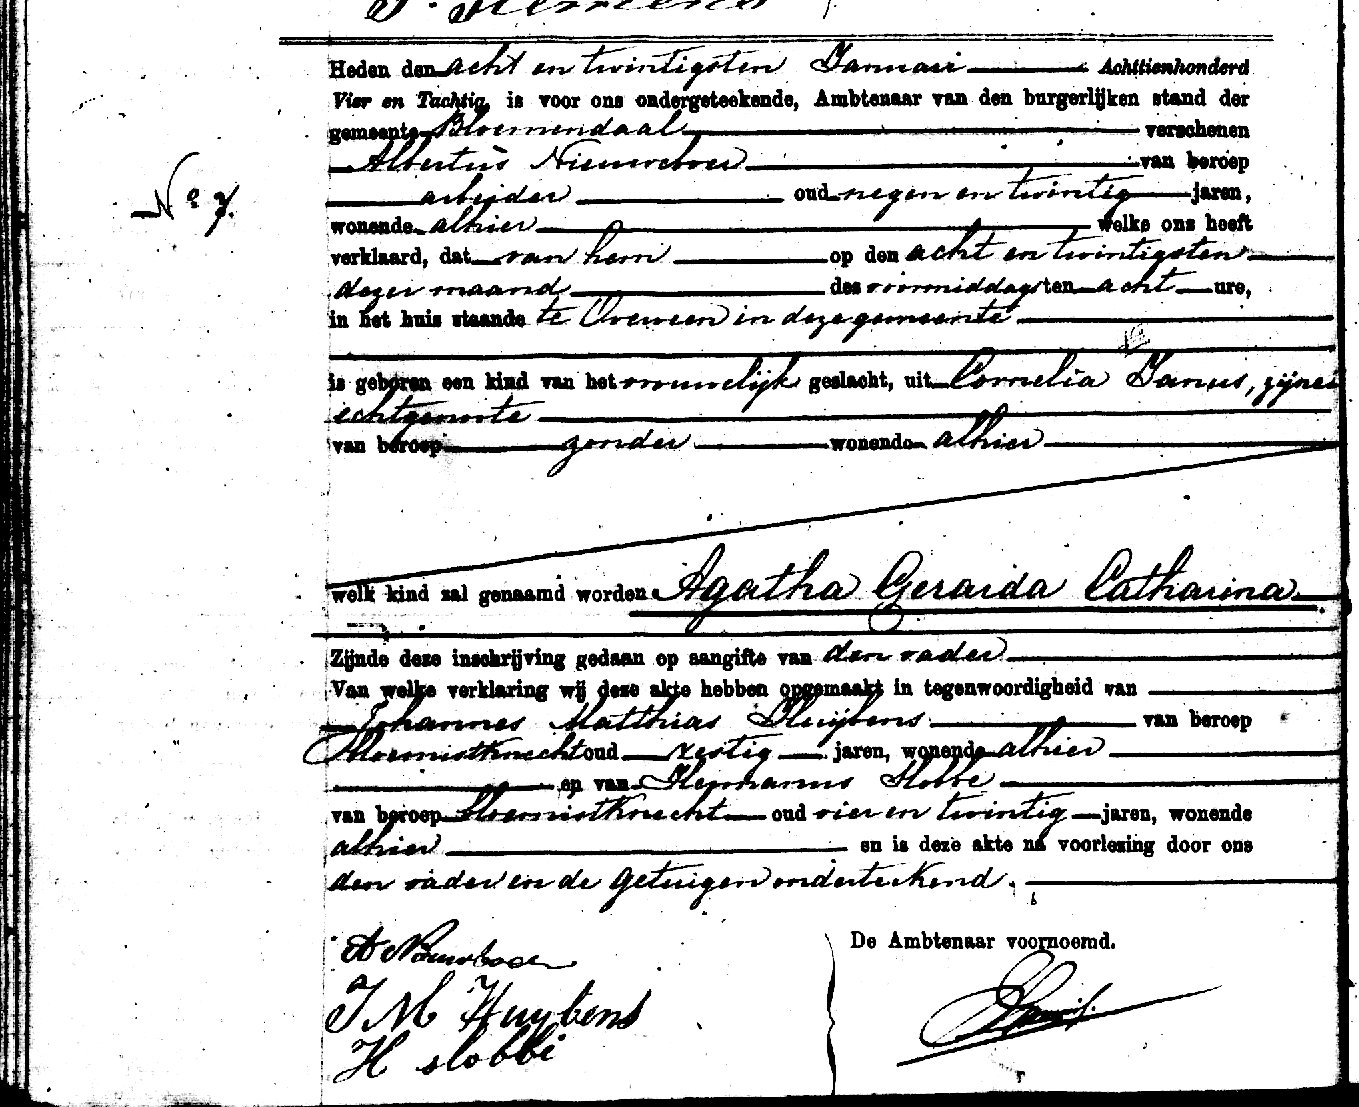 Heden den acht en twintigsten Januari Achttienhonderd
Vier en Tachtig, is voor ons ondergeteekende, Ambtenaar van den burgerlijken stand der
gemeente Bloemendaal verschenen
Albertus Nieuweboer van beroep
No 7.
arbeider oud negen en twintig jaren,
wonende alhier welke ons heeft
verklaard, dat van hem op den acht en twintigsten
dezer maand des voormiddags ten acht ure,
in het huis staande te Overveen in deze gemeente
is geboren een kind van het vrouwelijk geslacht, uit Cornelia Janus, zijne
echtgenoote
van beroep zonder wonende alhier
welk kind zal genaamd worden Agatha Gerarda Catharina
Zijnde deze inschrijving gedaan op aangifte van den vader
Van welke verklaring wij deze akte hebben opgemaakt in tegenwoordigheid van
Johannes Matthias Huijbens van beroep
Bloemistknecht oud zestig jaren, wonende alhier
en van Hermanus Slobbe
van beroep bloemistknecht oud vier en twintig jaren, wonende
alhier en is deze akte na voorlezing door ons
den vader en de getuigen onderteekend.
De Ambtenaar voornoemd.
J M Huybens
H slobbe